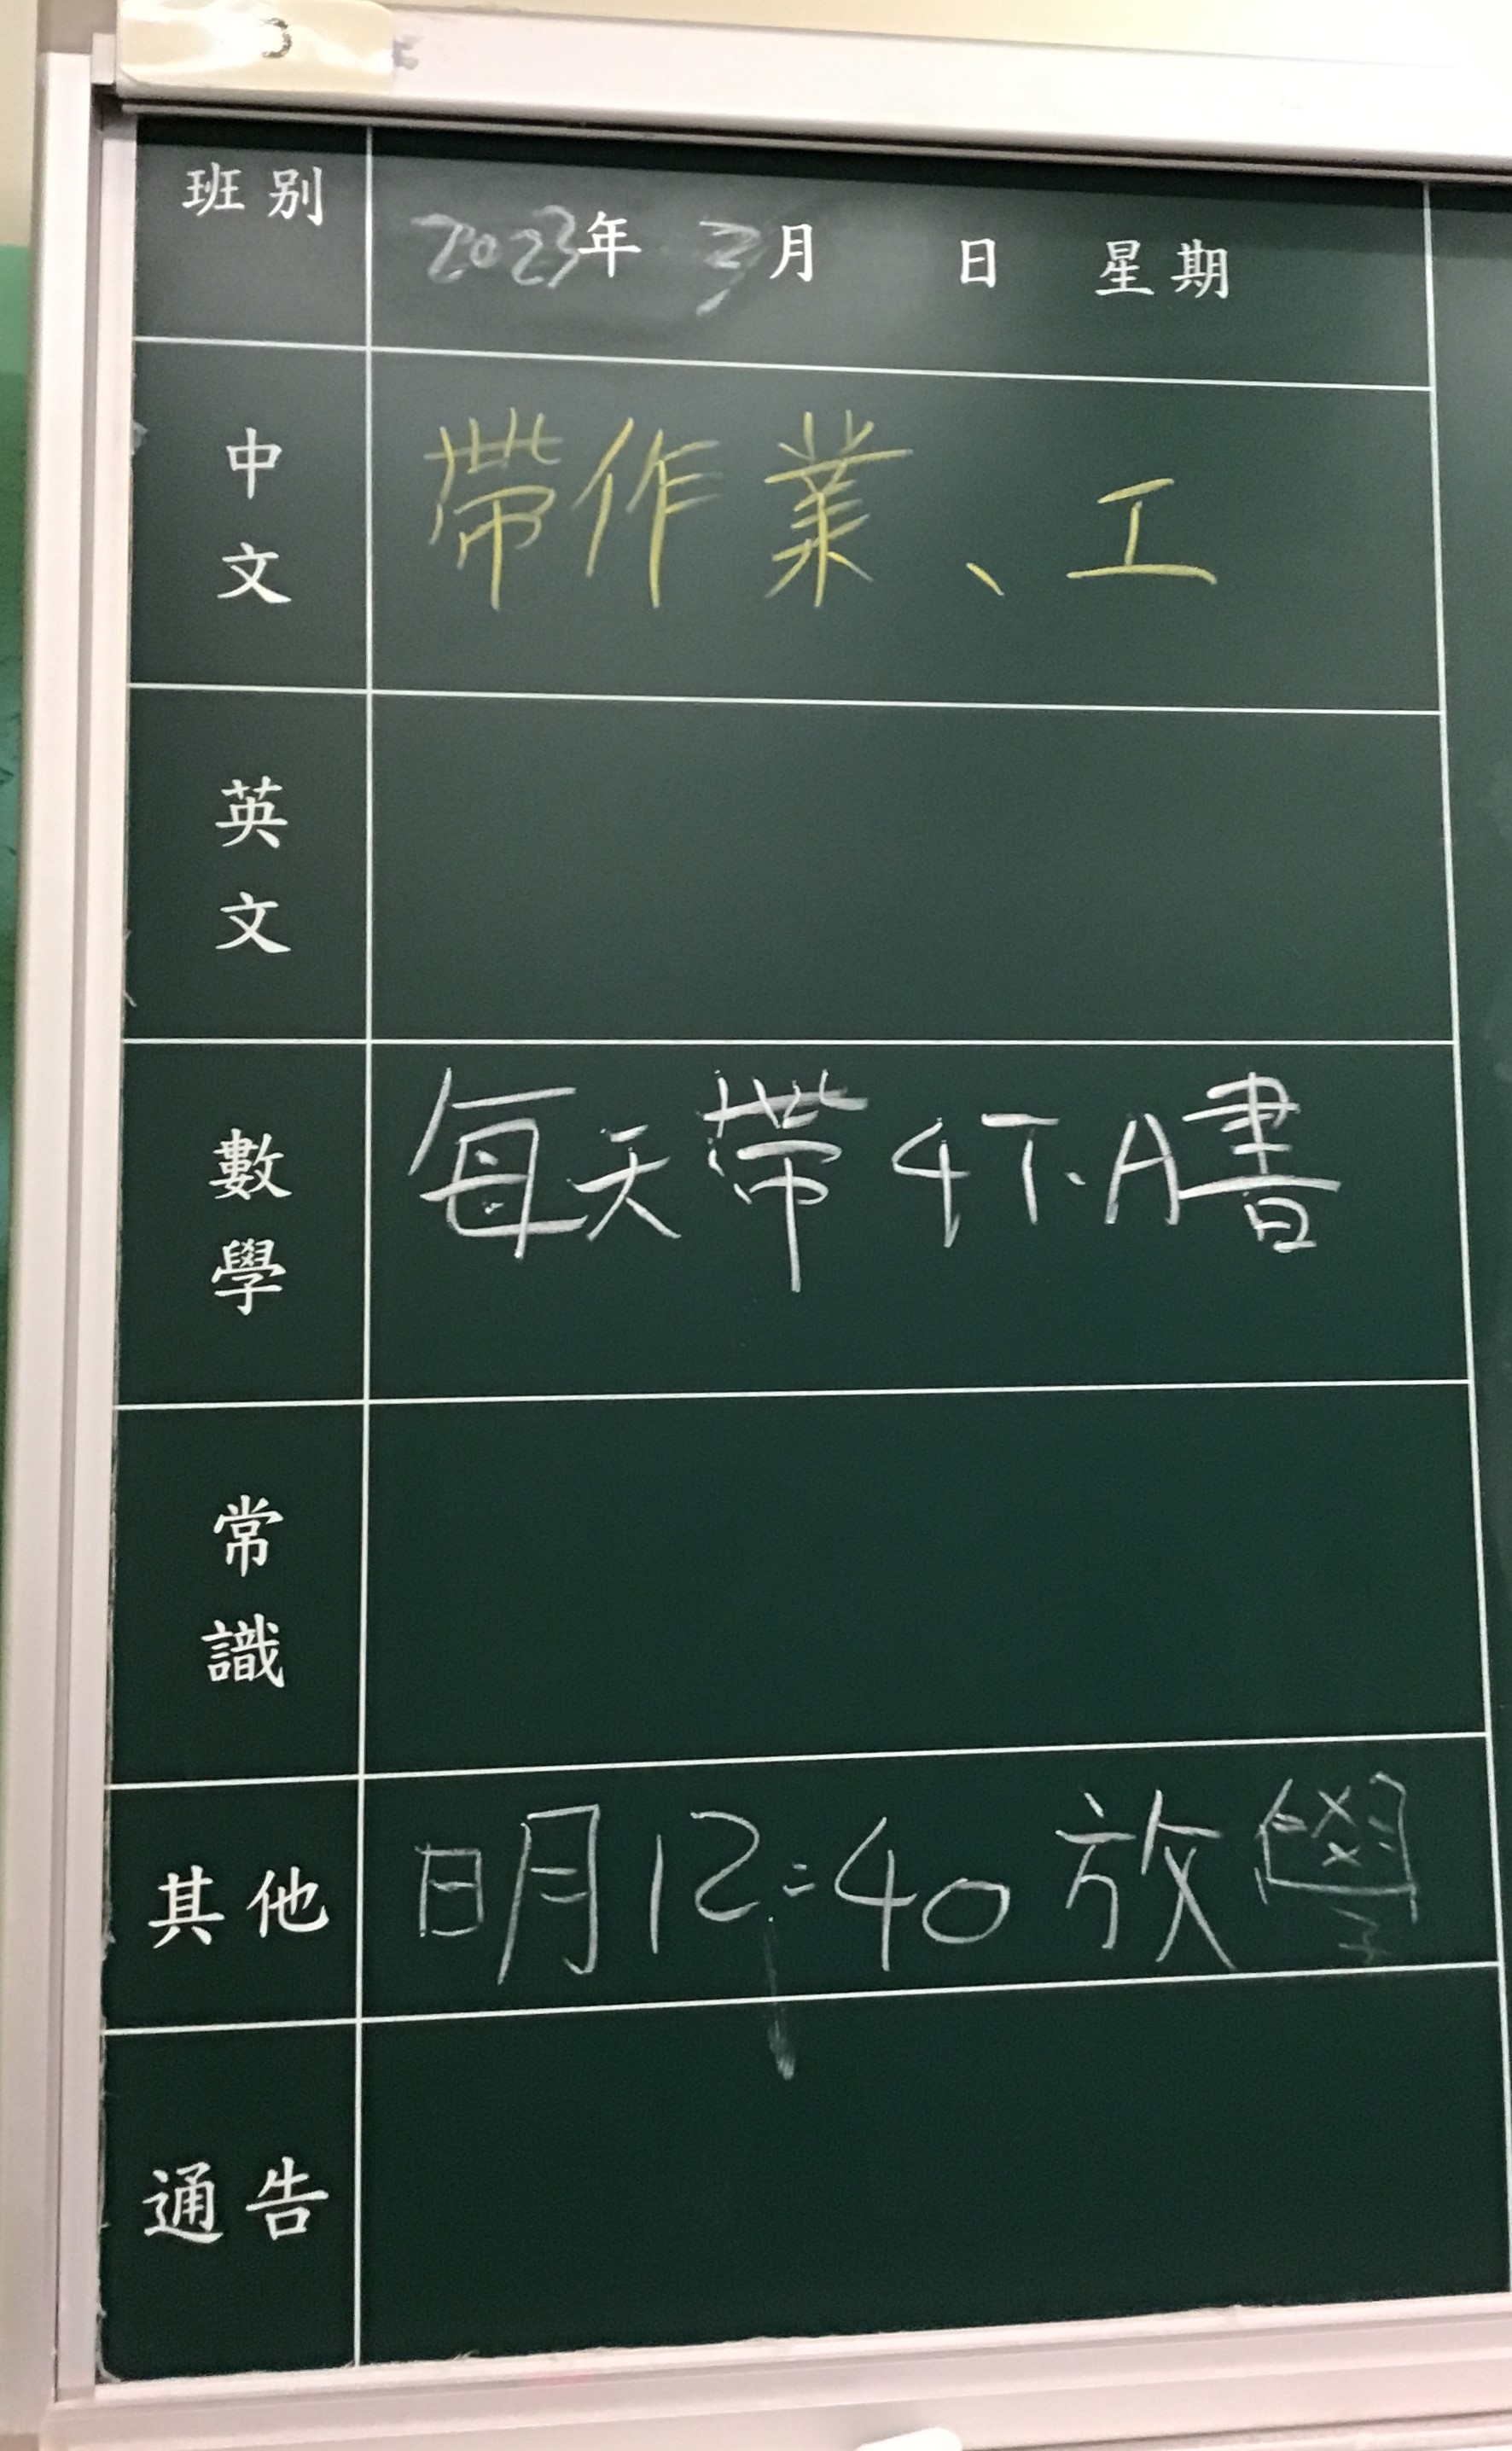 班別
2023年 3月 日 星期
中文
帶作業、工
英文
數學
每天帶4T.A書
常識
其他
明12:40放學
通告